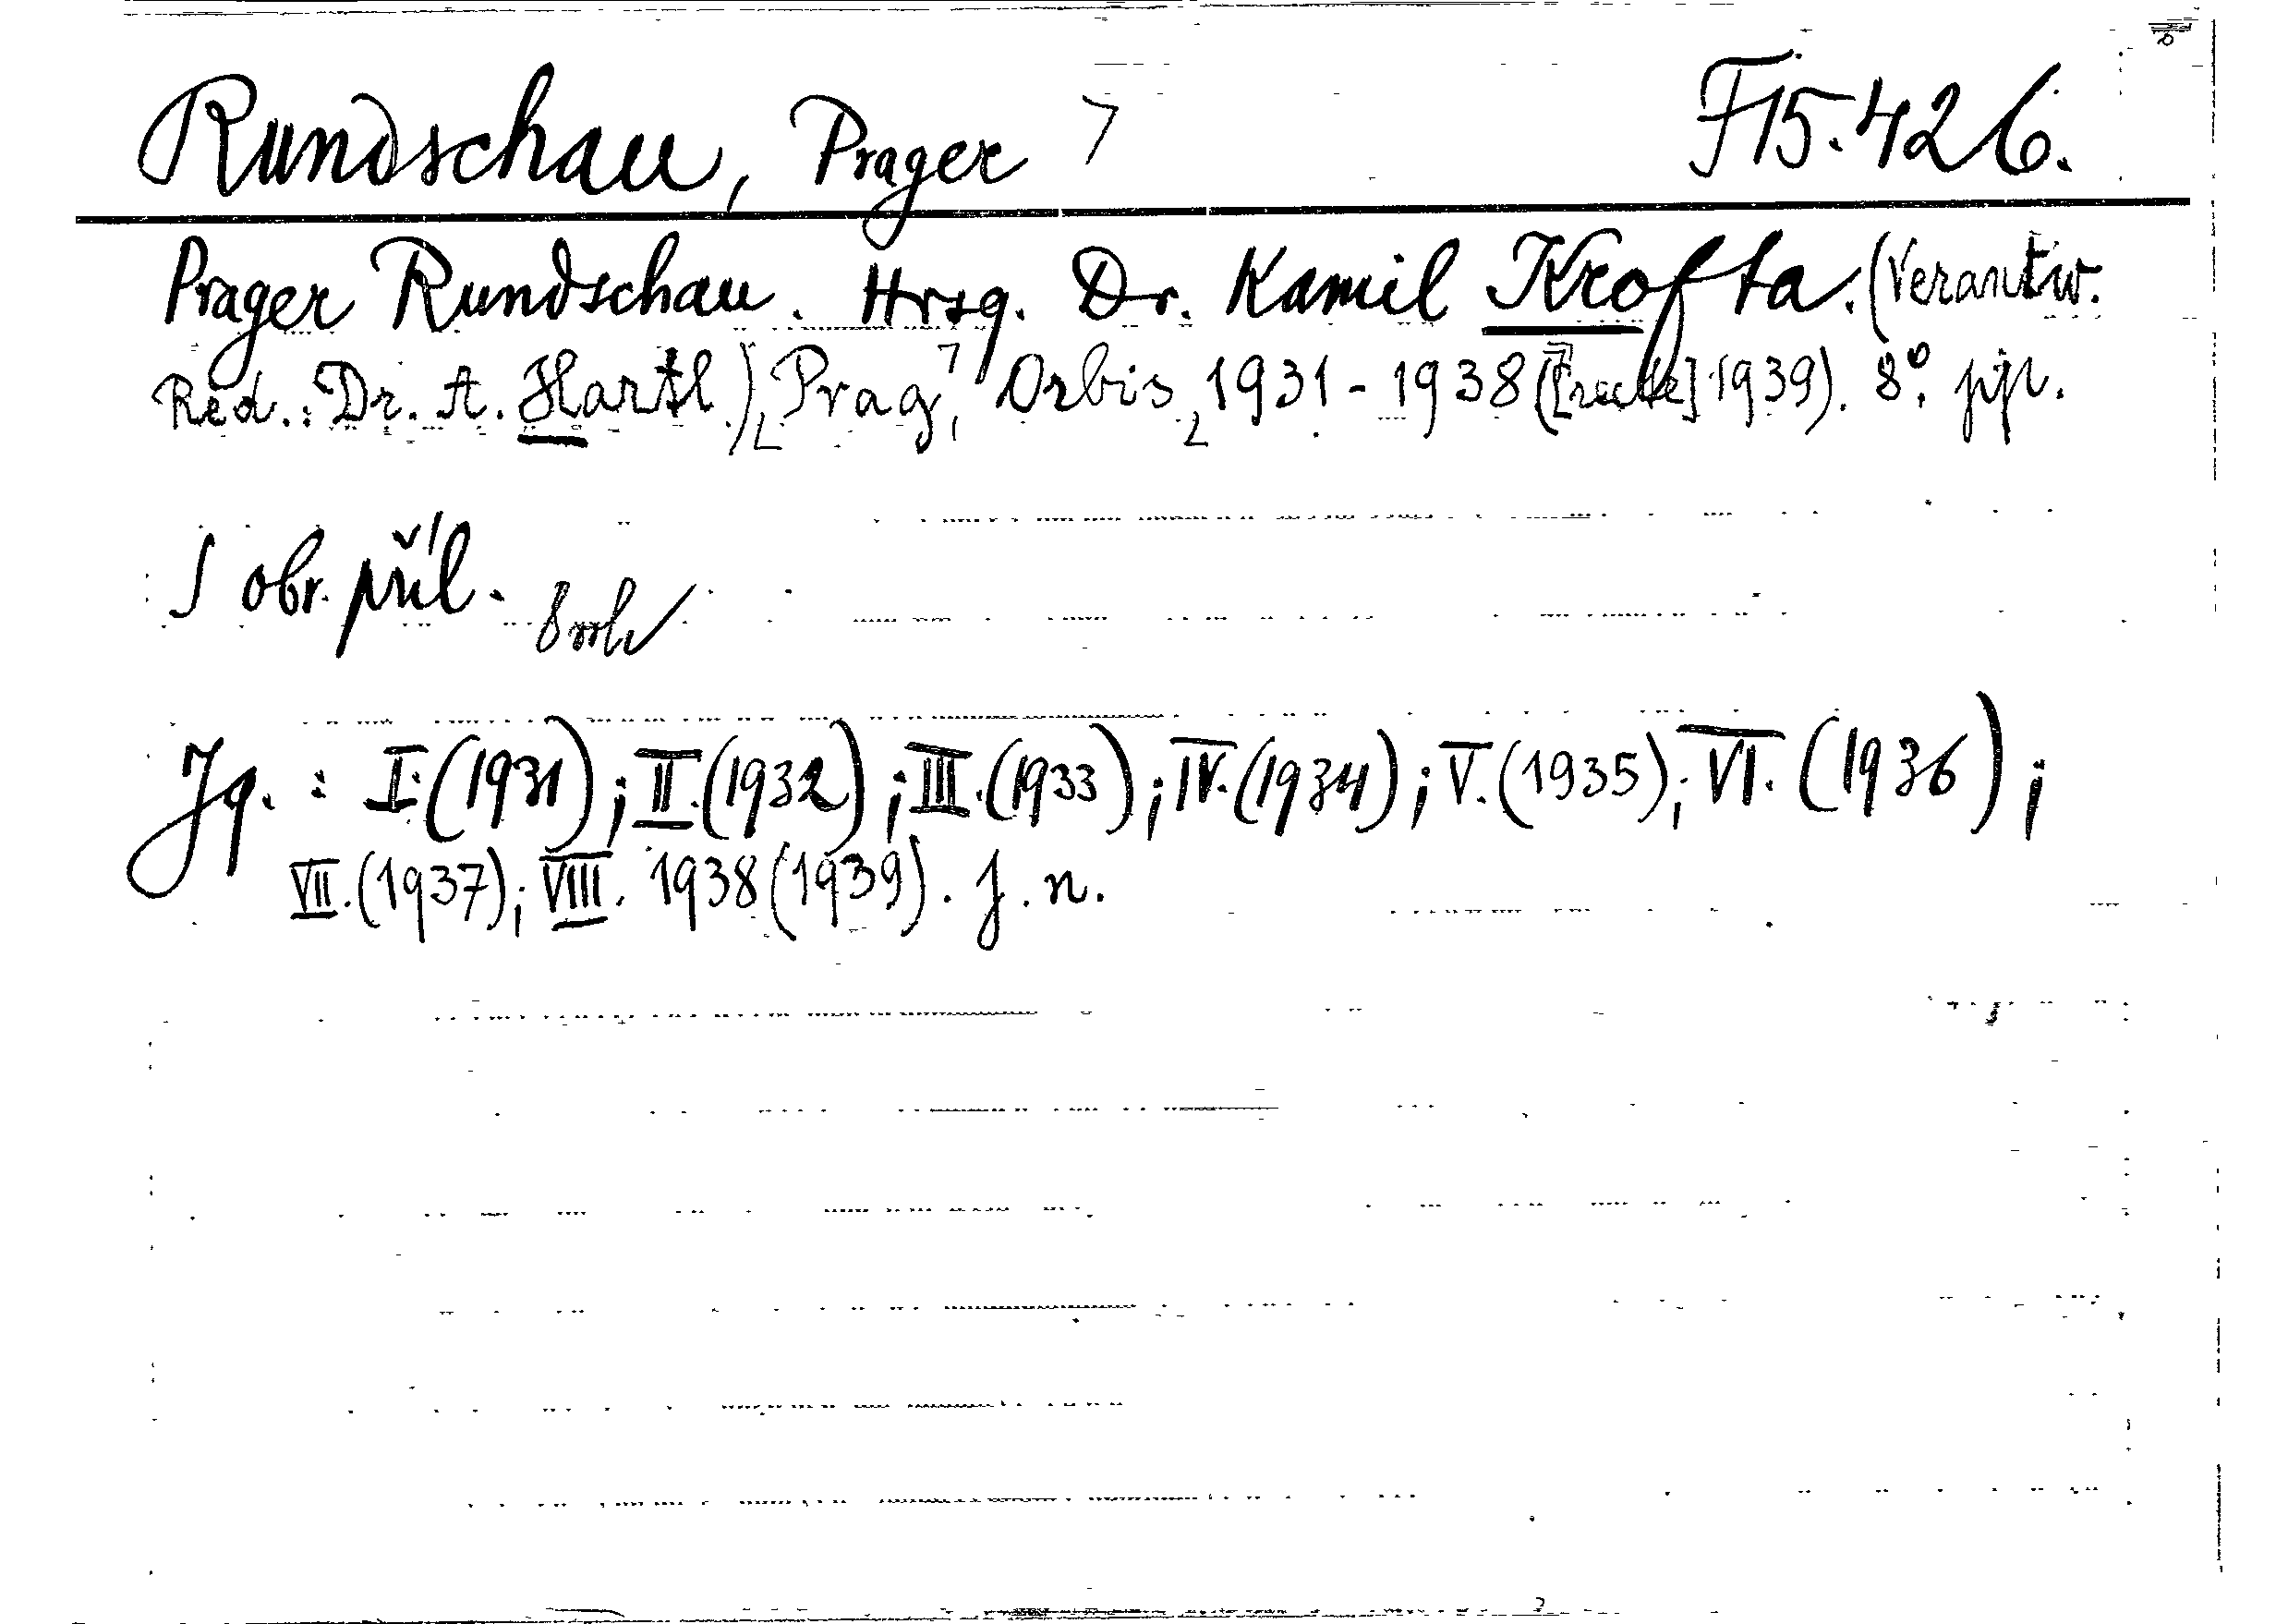 Rundschau, Prager F 15.426.
Prager Rundschau. Hrsg. Dr. Kamil Krofta. (Verantw.
Red.: Dr. A. Hartl.) Prag, Orbis, 1931-1938 ([recte] 1939). 8°. ppl.
S obr. příl.
Jg.: I. (1931); II. (1932); III. (1933); IV. (1934); V. (1935); VI. (1936);
VII. (1937); VIII. 1938 (1939). J. n.